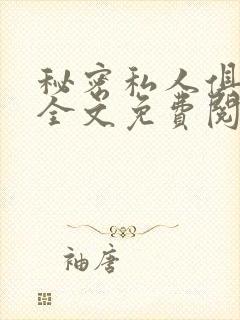 秘密私人俱
全文免费阅
袖唐